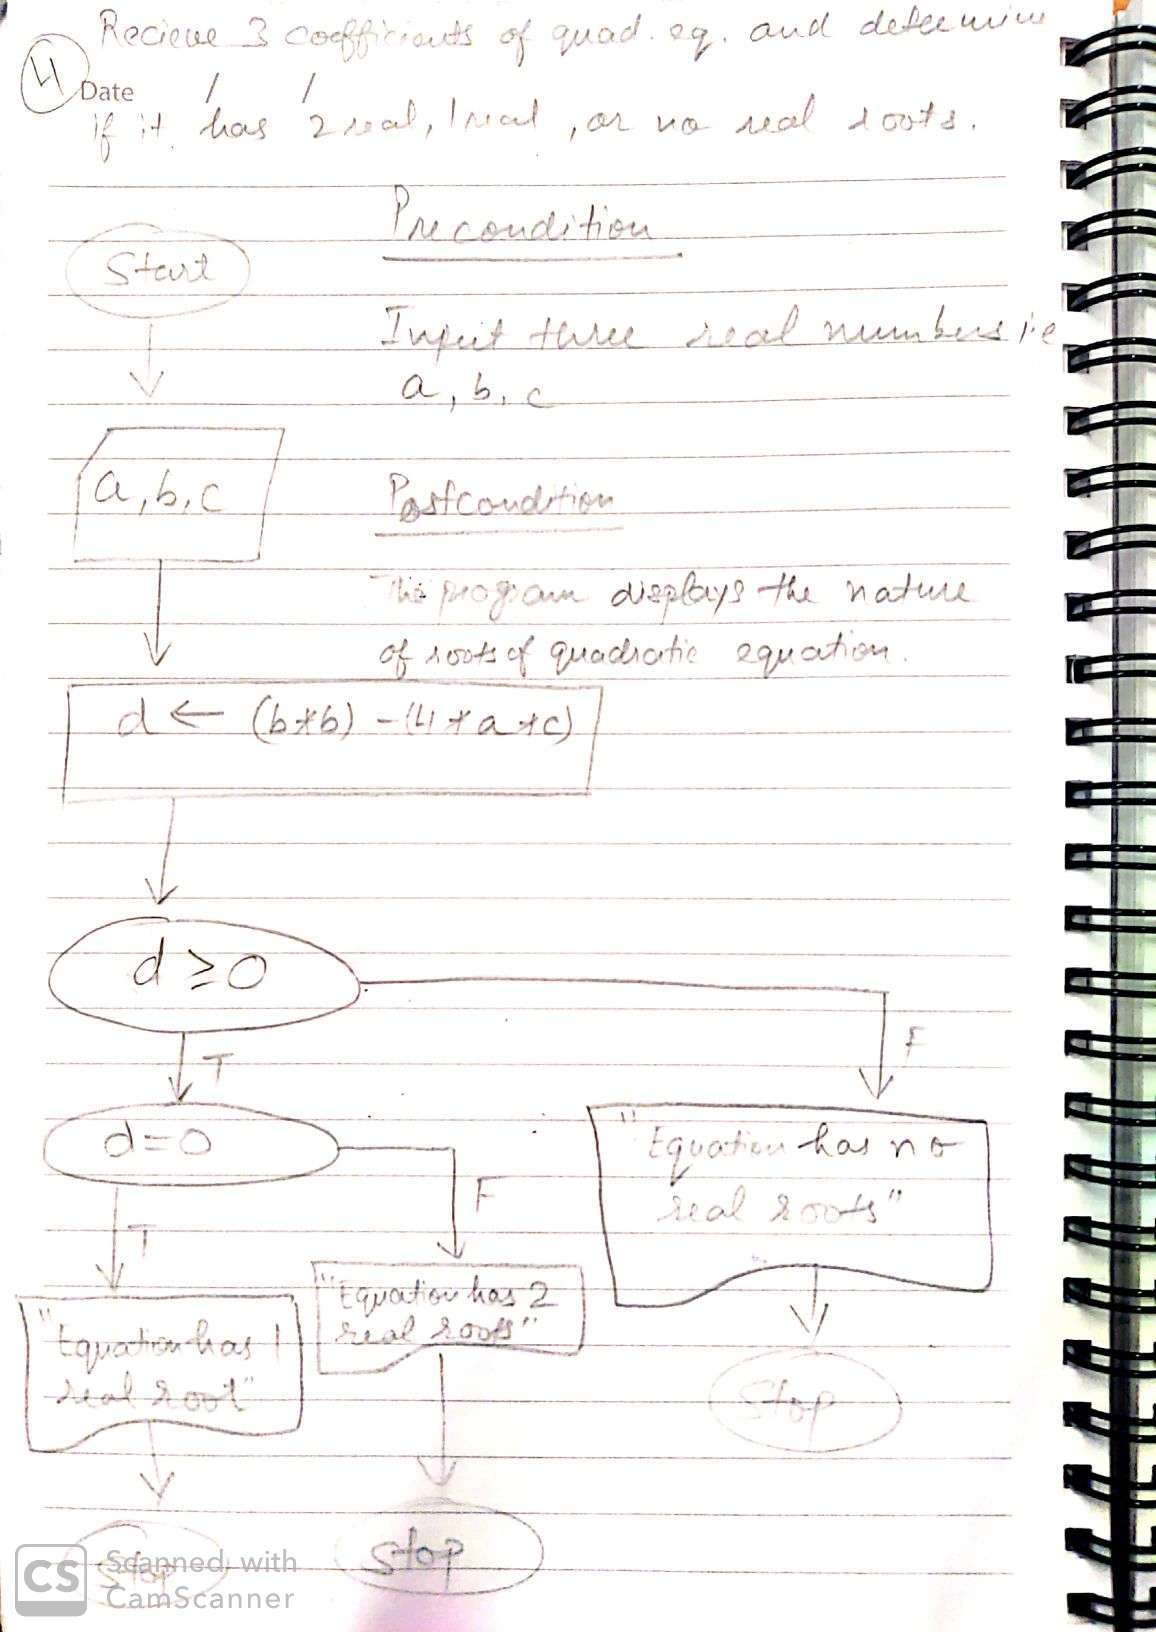 Recieve 3 coefficients of quad. eq. and determine
4
Date / /
if it has 2 real, 1 real, or no real roots.
Precondition
Start
Input three real numbers i.e
a, b, c
a, b, c
Postcondition
The program displays the nature
of roots of quadratic equation.
d ← (b*b) - (4*a*c)
d ≥ 0
F
T
d = 0
"Equation has no
real roots"
F
T
"Equation has 2
real roots"
"Equation has 1
real root"
Stop
Stop
Stop
CS Scanned with
CamScanner